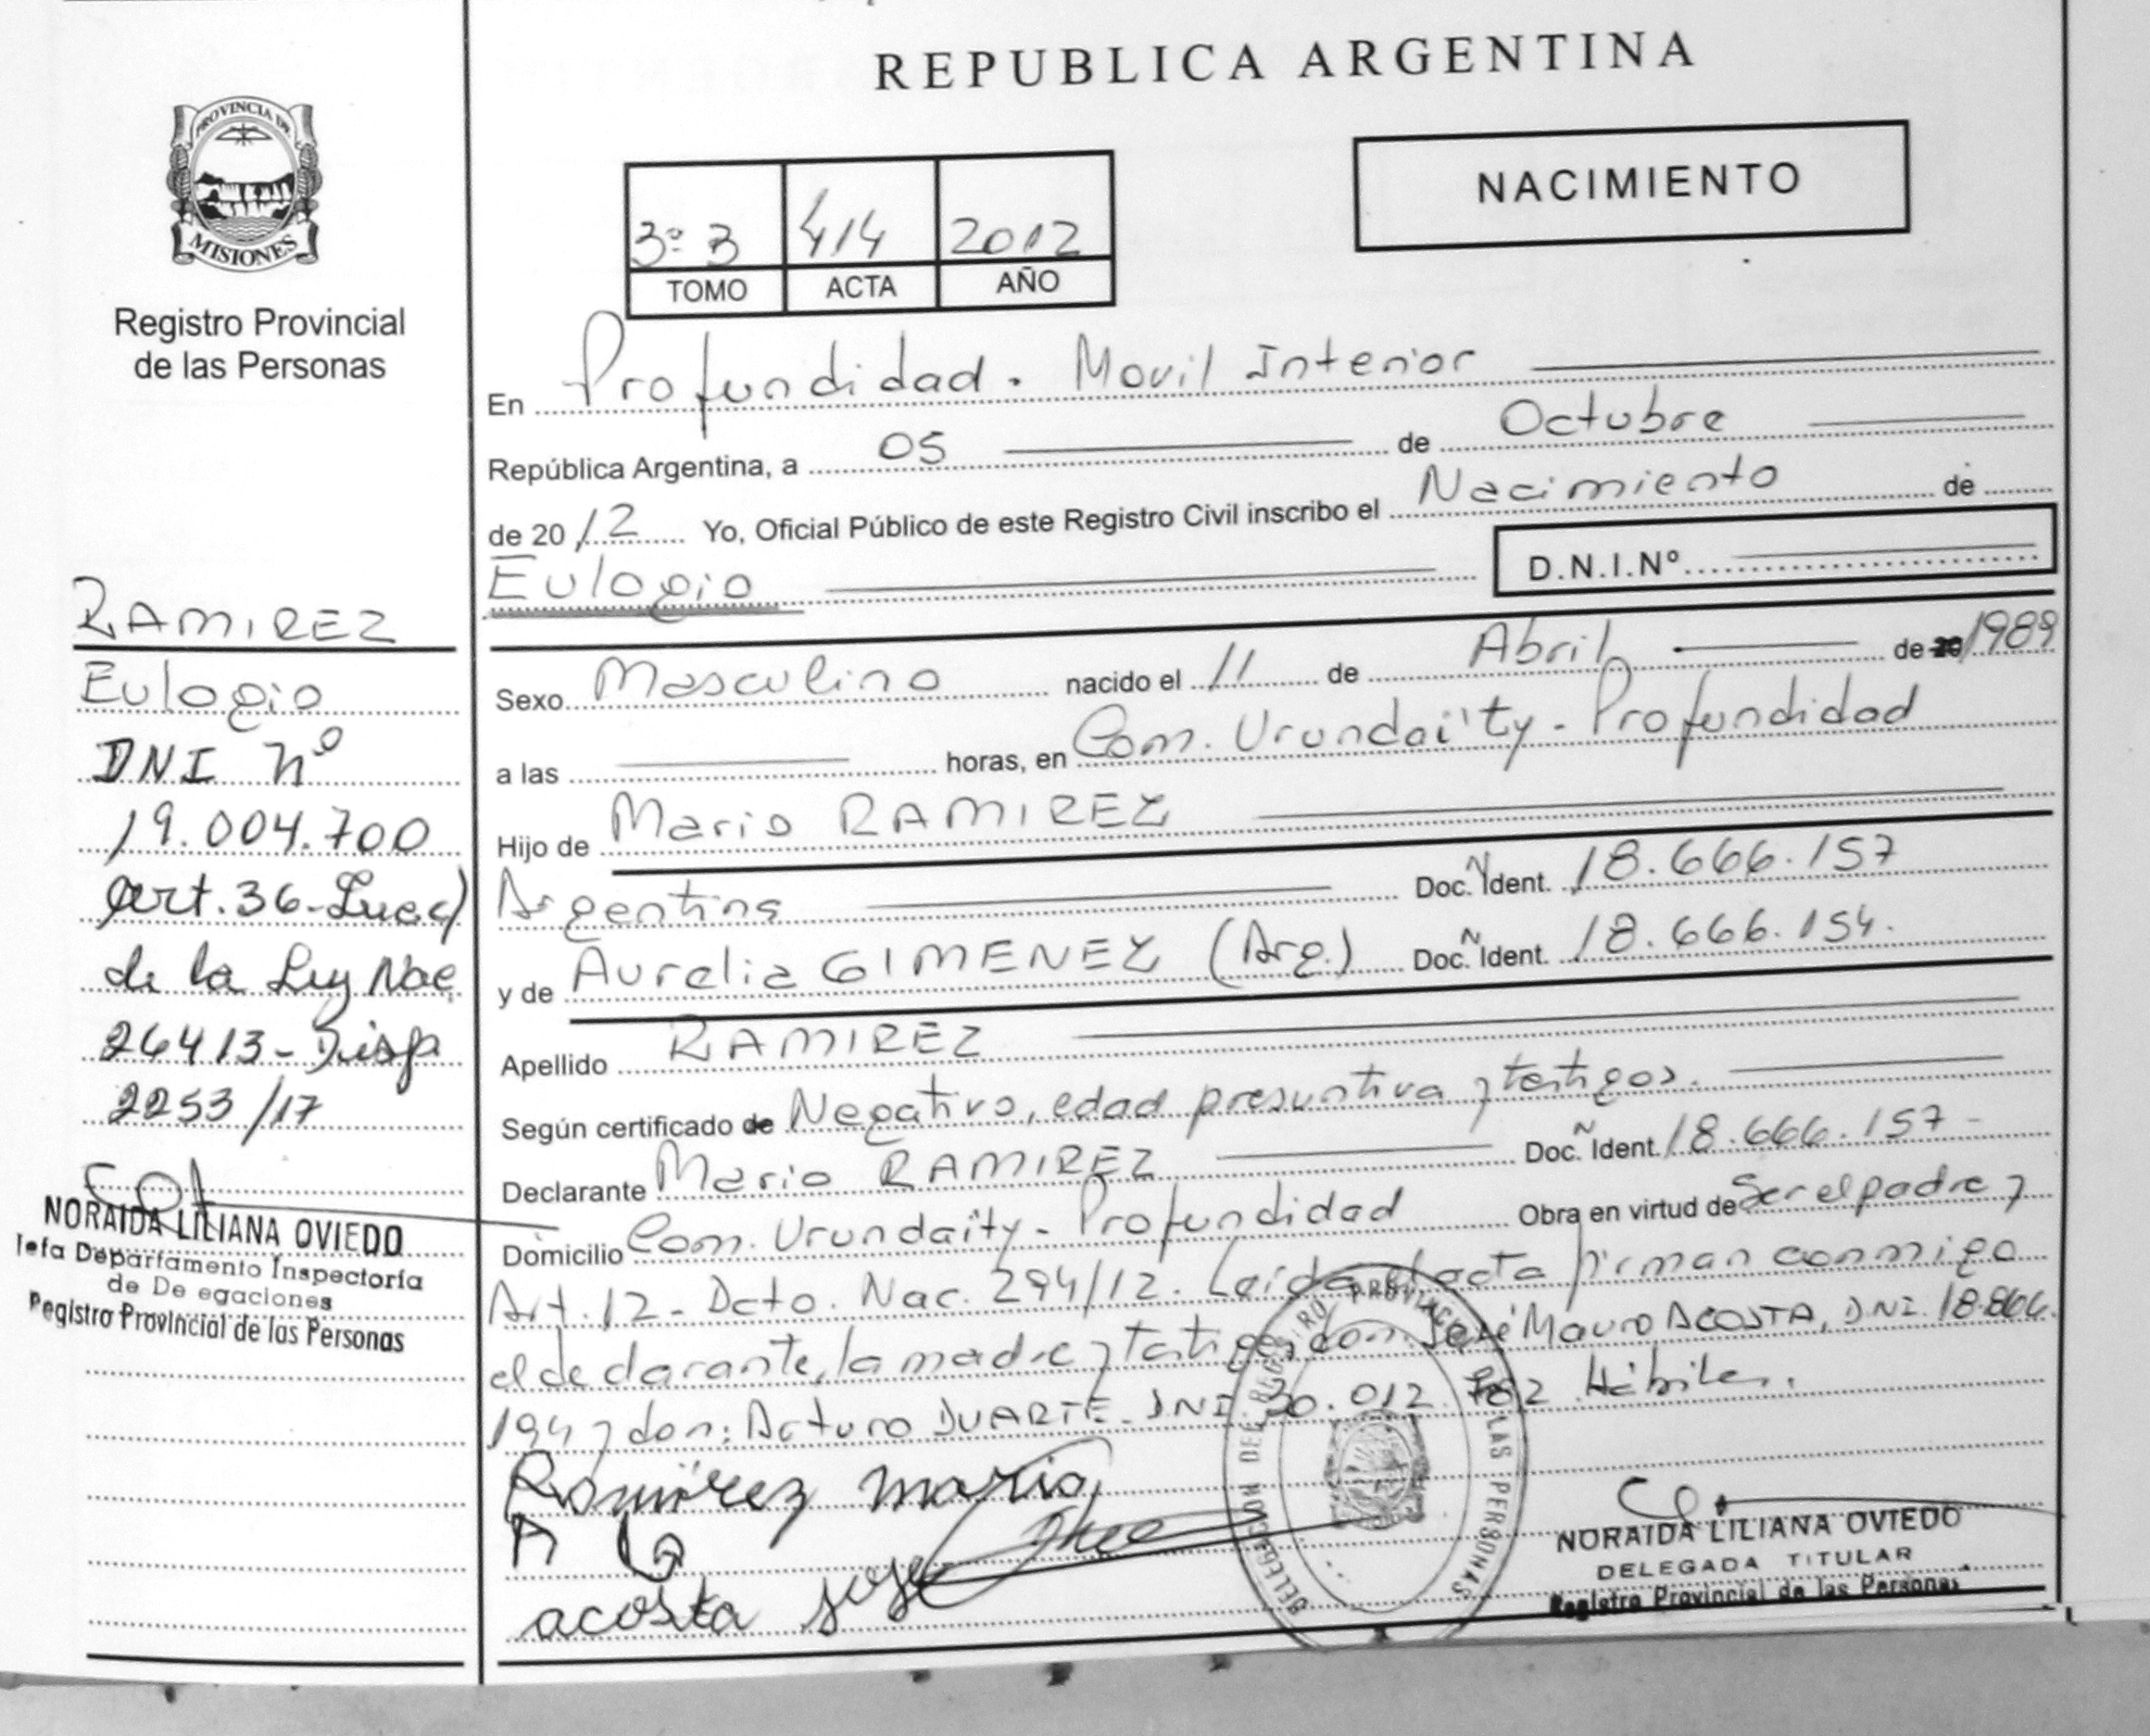 REPUBLICA ARGENTINA
PROVINCIA DE
MISIONES
Registro Provincial
de las Personas
NACIMIENTO
3º B 414 2012
TOMO ACTA AÑO
En Profundidad. Movil Interior
República Argentina, a 05 de Octubre
de 2012 Yo, Oficial Público de este Registro Civil inscribo el Nacimiento de
Eulogio D.N.I.Nº
Sexo Masculino nacido el 11 de Abril de 1989
a las horas, en Com. Urundaity - Profundidad
Hijo de Mario RAMIREZ
Argentina Doc. N Ident. 18.666.157
y de Aurelia GIMENEZ (Arg.) Doc. N Ident. 18.666.154.
Apellido RAMIREZ
Según certificado de Negativo, edad presuntiva y testigos.
Declarante Mario RAMIREZ Doc. N Ident. 18.666.157 -
Domicilio Com. Urundaity - Profundidad Obra en virtud de Ser el padre y
Art. 12 - Dcto. Nac. 294/12. Leída el acta firman conmigo
el declarante, la madre y testigos, don: José Mauro ACOSTA, DNI. 18.866.
194 y don: Arturo DUARTE - DNI 30.012. Hábiles.
Ramirez mario
acosta jose
DELEGACION DEL REGISTRO PROVINCIAL DE LAS PERSONAS
NORAIDA LILIANA OVIEDO
DELEGADA TITULAR
Registro Provincial de las Personas
RAMIREZ
Eulogio
DNI Nº
19.004.700
art. 36 - Inc. c)
de la Ley Nac
26413 - Disp
2253/17
NORAIDA LILIANA OVIEDO
Jefa Departamento Inspectoría
de De egaciones
Registro Provincial de las Personas